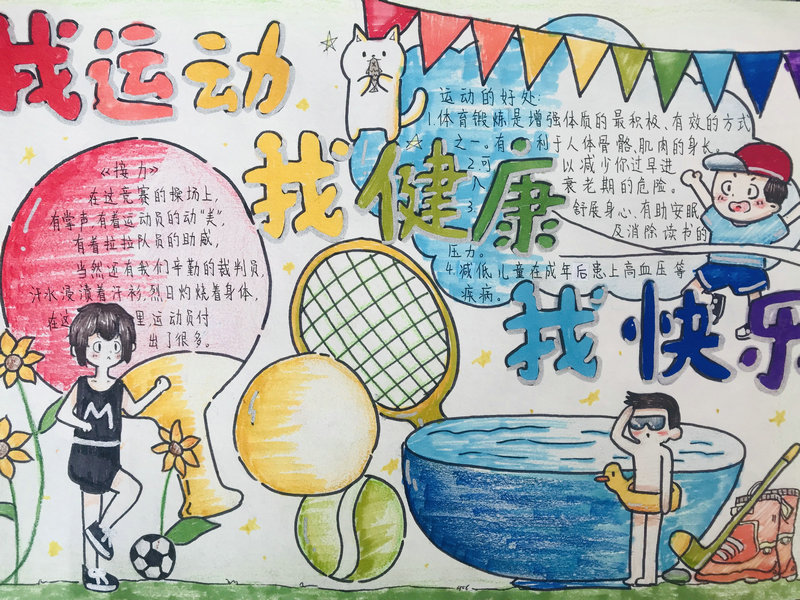 我运动
我健康
我快乐
《接力》
在这竞赛的操场上，
有掌声有着运动员的动“美”，
有着拉拉队员的助威，
当然还有我们辛勤的裁判员，
汗水浸渍着汗衫，烈日灼烧着身体，
在这 里运动员付
出了很多。
运动的好处：
1.体育锻炼是增强体质的最积极、有效的方式
之一。有 利于人体骨骼、肌肉的身长。
2.可 以减少你过早进
入 衰老期的危险。
3. 舒展身心、有助安眠
及消除读书的
压力。
4.减低儿童在成年后患上高血压等
疾病。
M